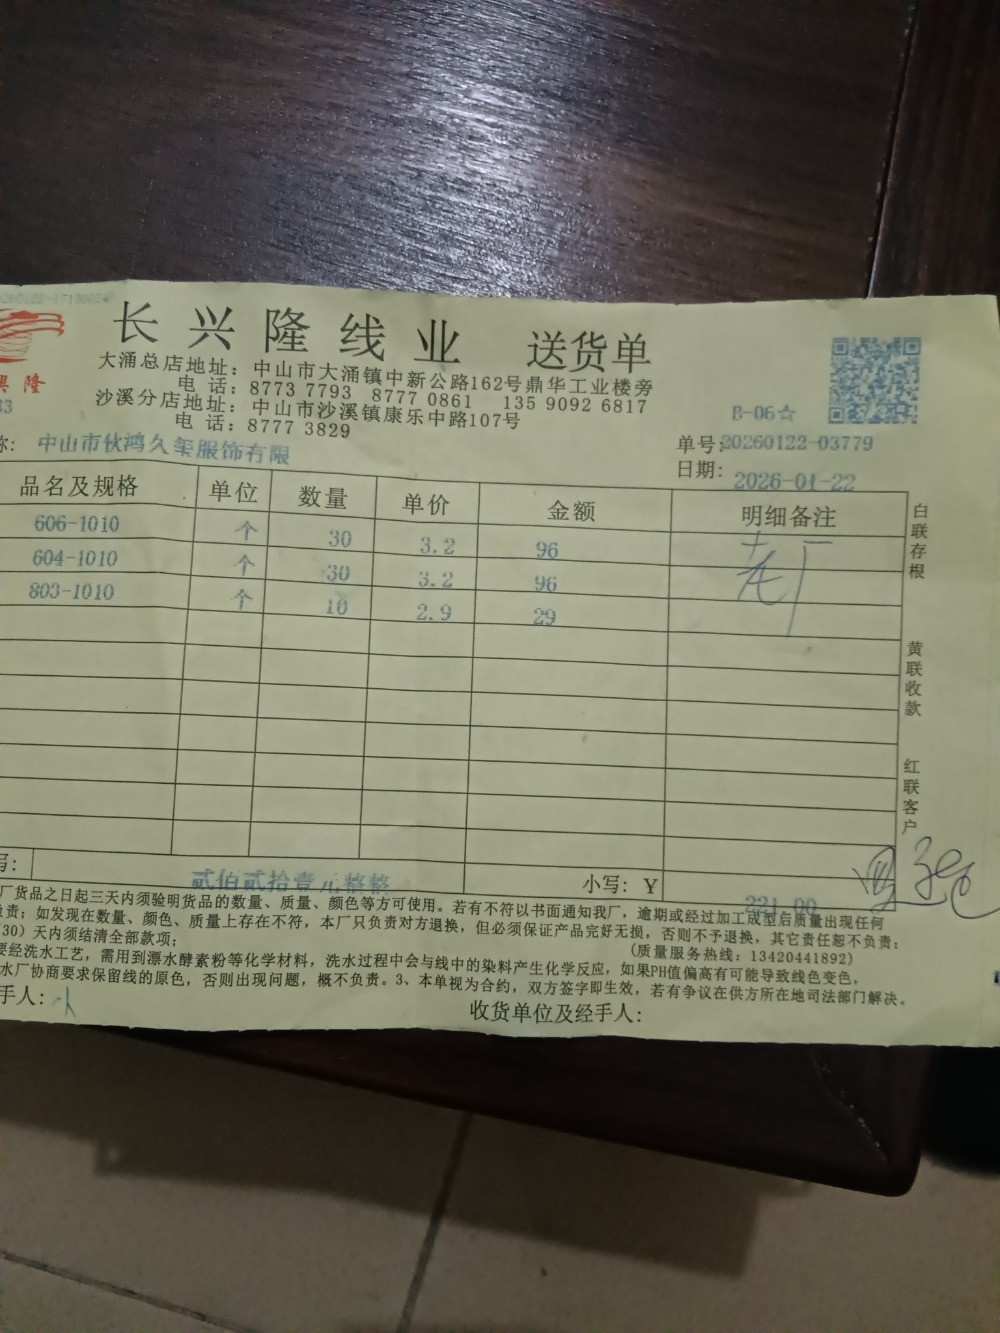 长兴隆线业 送货单
大涌总店地址：中山市大涌镇中新公路162号鼎华工业楼旁
电话：8773 7793 8777 0861 135 9092 6817
沙溪分店地址：中山市沙溪镇康乐中路107号
电话：8777 3829
興隆
33
B-06☆
称：中山市伙鸿久玺服饰有限
单号：20260122-03779
日期：2026-01-22
品名及规格 单位 数量 单价 金额 明细备注
606-1010 个 30 3.2 96
604-1010 个 30 3.2 96
803-1010 个 10 2.9 29
白联存根
黄联收款
红联客户
写：贰佰贰拾壹元整整 小写：Y 221.00
厂货品之日起三天内须验明货品的数量、质量、颜色等方可使用。若有不符以书面通知我厂，逾期或经过加工成型后质量出现任何
负责；如发现在数量、颜色、质量上存在不符，本厂只负责对方退换，但必须保证产品完好无损，否则不予退换，其它责任恕不负责；
（30）天内须结清全部款项；（质量服务热线：13420441892）
要经洗水工艺，需用到漂水酵素粉等化学材料，洗水过程中会与线中的染料产生化学反应，如果PH值偏高有可能导致线色变色，
水厂协商要求保留线的原色，否则出现问题，概不负责。3、本单视为合约，双方签字即生效，若有争议在供方所在地司法部门解决。
手人： 收货单位及经手人：